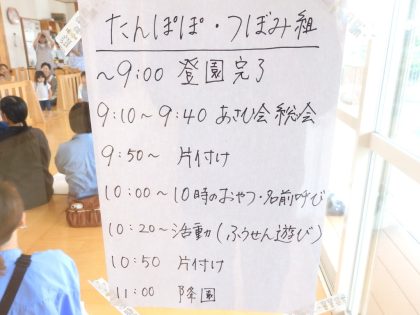 たんぽぽ・つぼみ組
～9:00 登園完了
9:10～9:40 あさひ会総会
9:50～ 片付け
10:00～10時のおやつ・名前呼び
10:20～活動(ふうせん遊び)
10:50 片付け
11:00 降園